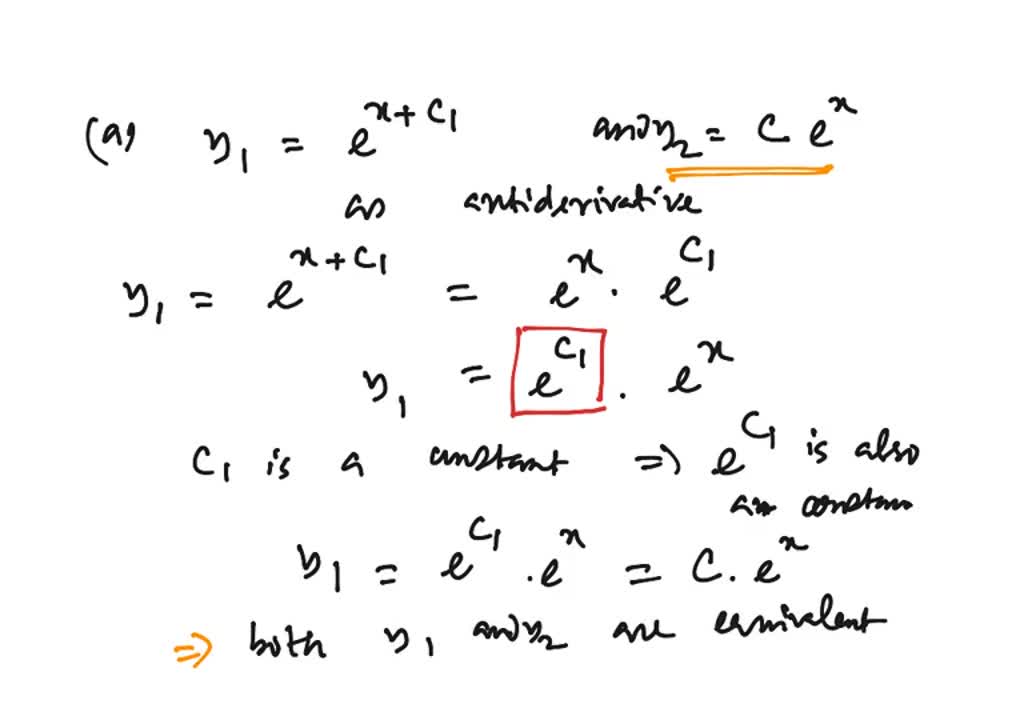 (a) y₁ = e^{x+C₁} and y₂ = C e^x
as antiderivative
y₁ = e^{x+C₁} = e^x · e^{C₁}
y₁ = e^{C₁} · e^x
C₁ is a constant ⇒ e^{C₁} is also
an constan
y₁ = e^{C₁} · e^x = C · e^x
⇒ both y₁ and y₂ are equivalent